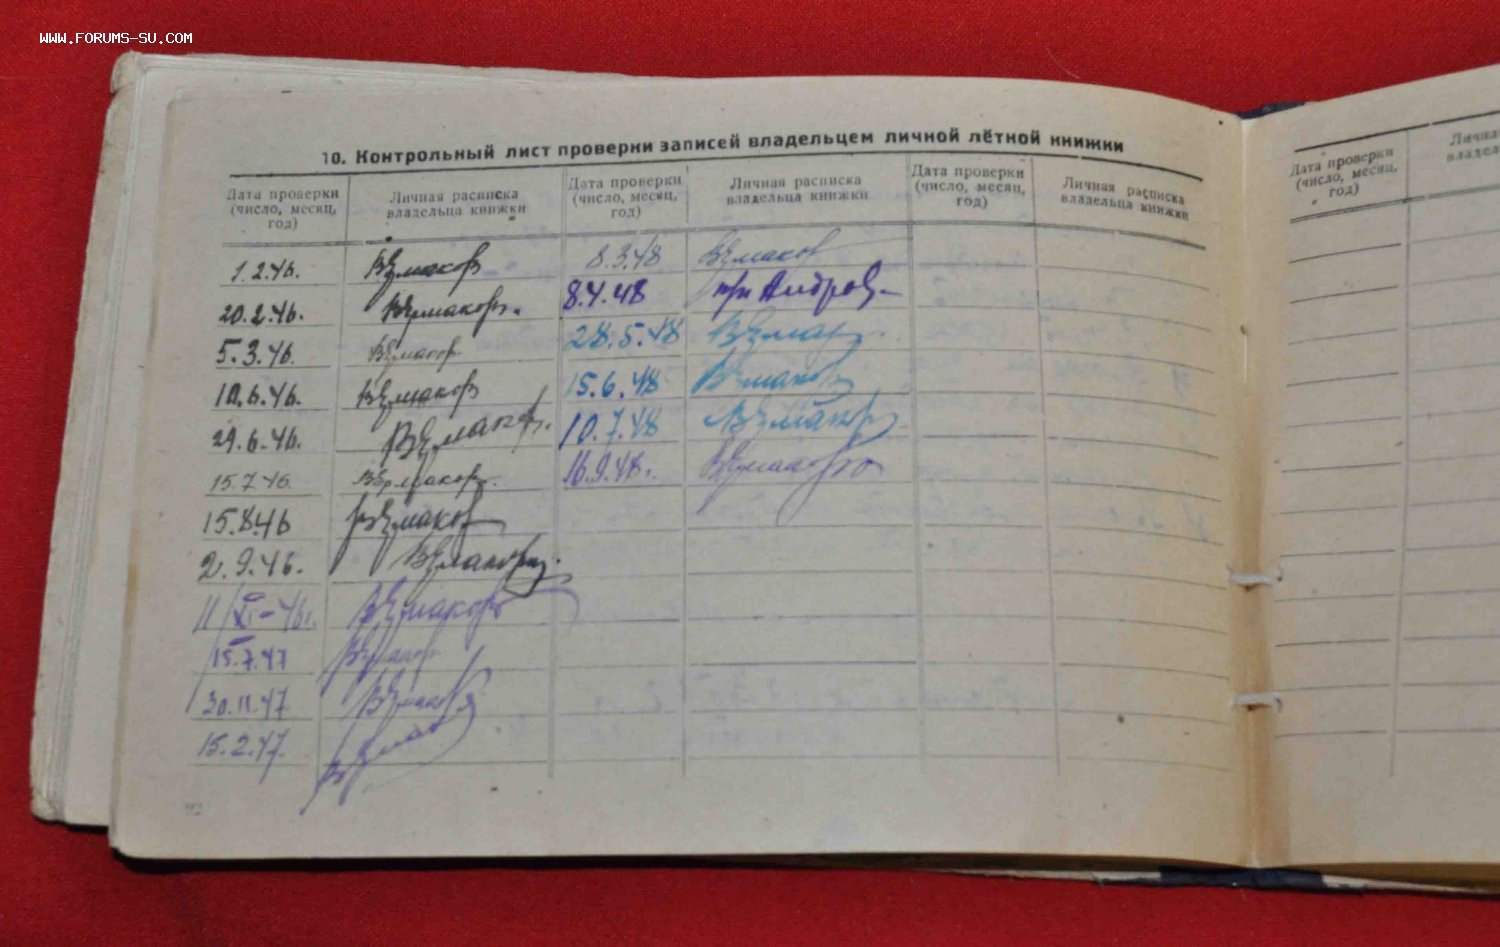 WWW.FORUMS-SU.COM
10. Контрольный лист проверки записей владельцем личной лётной книжки
Дата проверки (число, месяц, год) Личная расписка владельца книжки Дата проверки (число, месяц, год) Личная расписка владельца книжки Дата проверки (число, месяц, год) Личная расписка владельца книжки
1.2.46. ВЕрмаков 8.3.48 ВЕрмаков
20.2.46. ВЕрмаков. 8.4.48
5.3.46. ВЕрмаков 28.5.48 ВЕрмаков
10.6.46. ВЕрмаков 15.6.48 ВЕрмаков
29.6.46. ВЕрмаков. 10.7.48 ВЕрмаков
15.7.46. ВЕрмаков. 16.9.48. ВЕрмаков
15.8.46 ВЕрмаков
2.9.46. ВЕрмаков
11/XI-46г. ВЕрмаков
15.7.47 ВЕрмаков
30.11.47 ВЕрмаков
15.2.47. ВЕрмаков
192
Дата проверки (число, месяц, год)